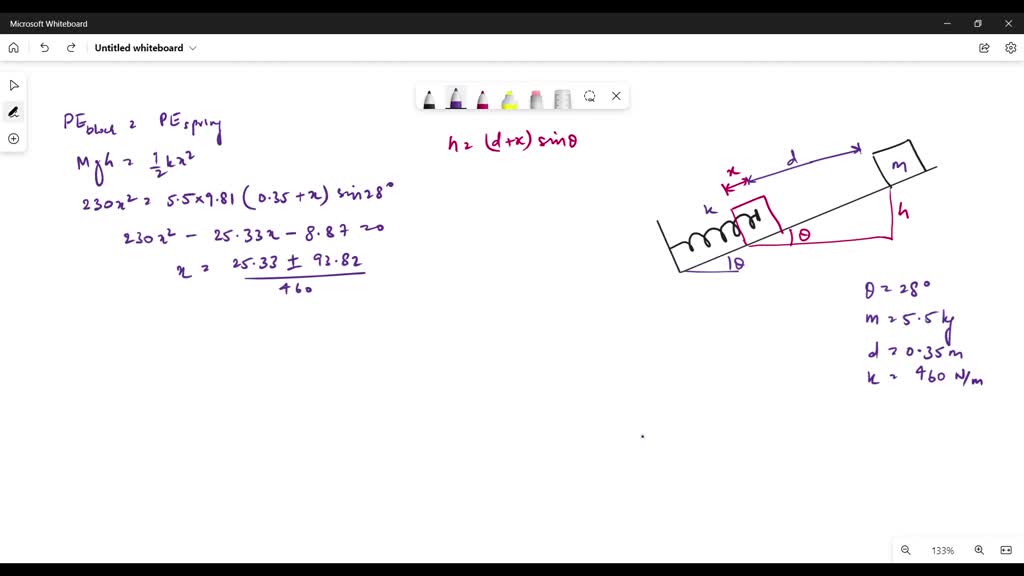 Microsoft Whiteboard
Untitled whiteboard
PE block = PE spring
Mgh = 1/2 kx²
230x² = 5.5×9.81 (0.35+x) sin28°
230x² - 25.33x - 8.87 = 0
x = 25.33 ± 93.82
460
h = (d+x) sinθ
x
d
m
k
h
θ
θ
θ = 28°
m = 5.5 kg
d = 0.35m
k = 460 N/m
133%